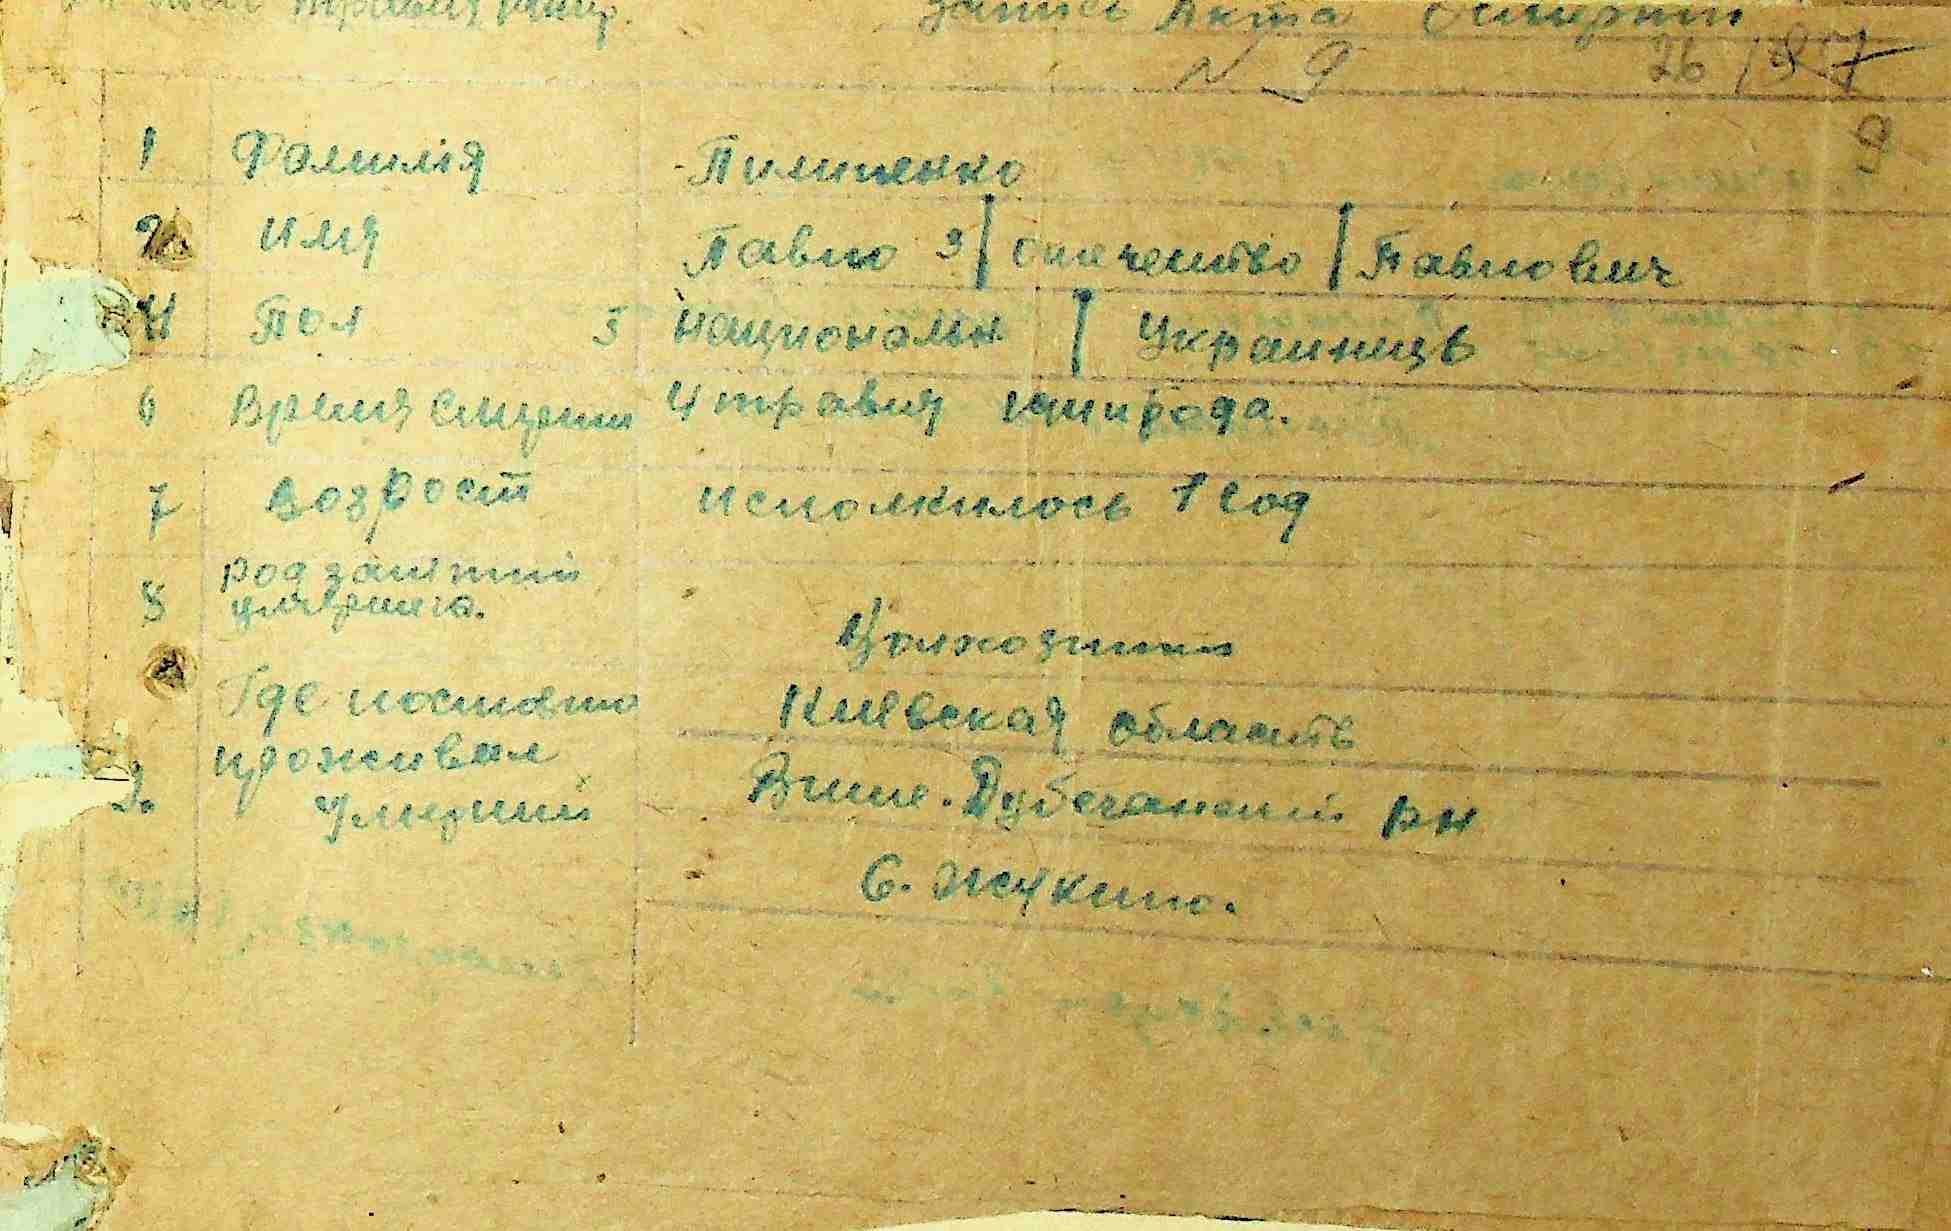 запись Акта Смерти
N 9
26/37
9
1 Фамилія Пилипенко
2 имя Павло 3 | отчество | Павлович
4 Пол 5 Национальн | Украинець
6 Время Смерти 4 травня года.
7 возрост исполнилось 1 год
8 род занятий
умершего.
Колхозник
Где постояно Киевская область
проживал
9. Умерший Више-Дубечанский Рн
С. Жукино.